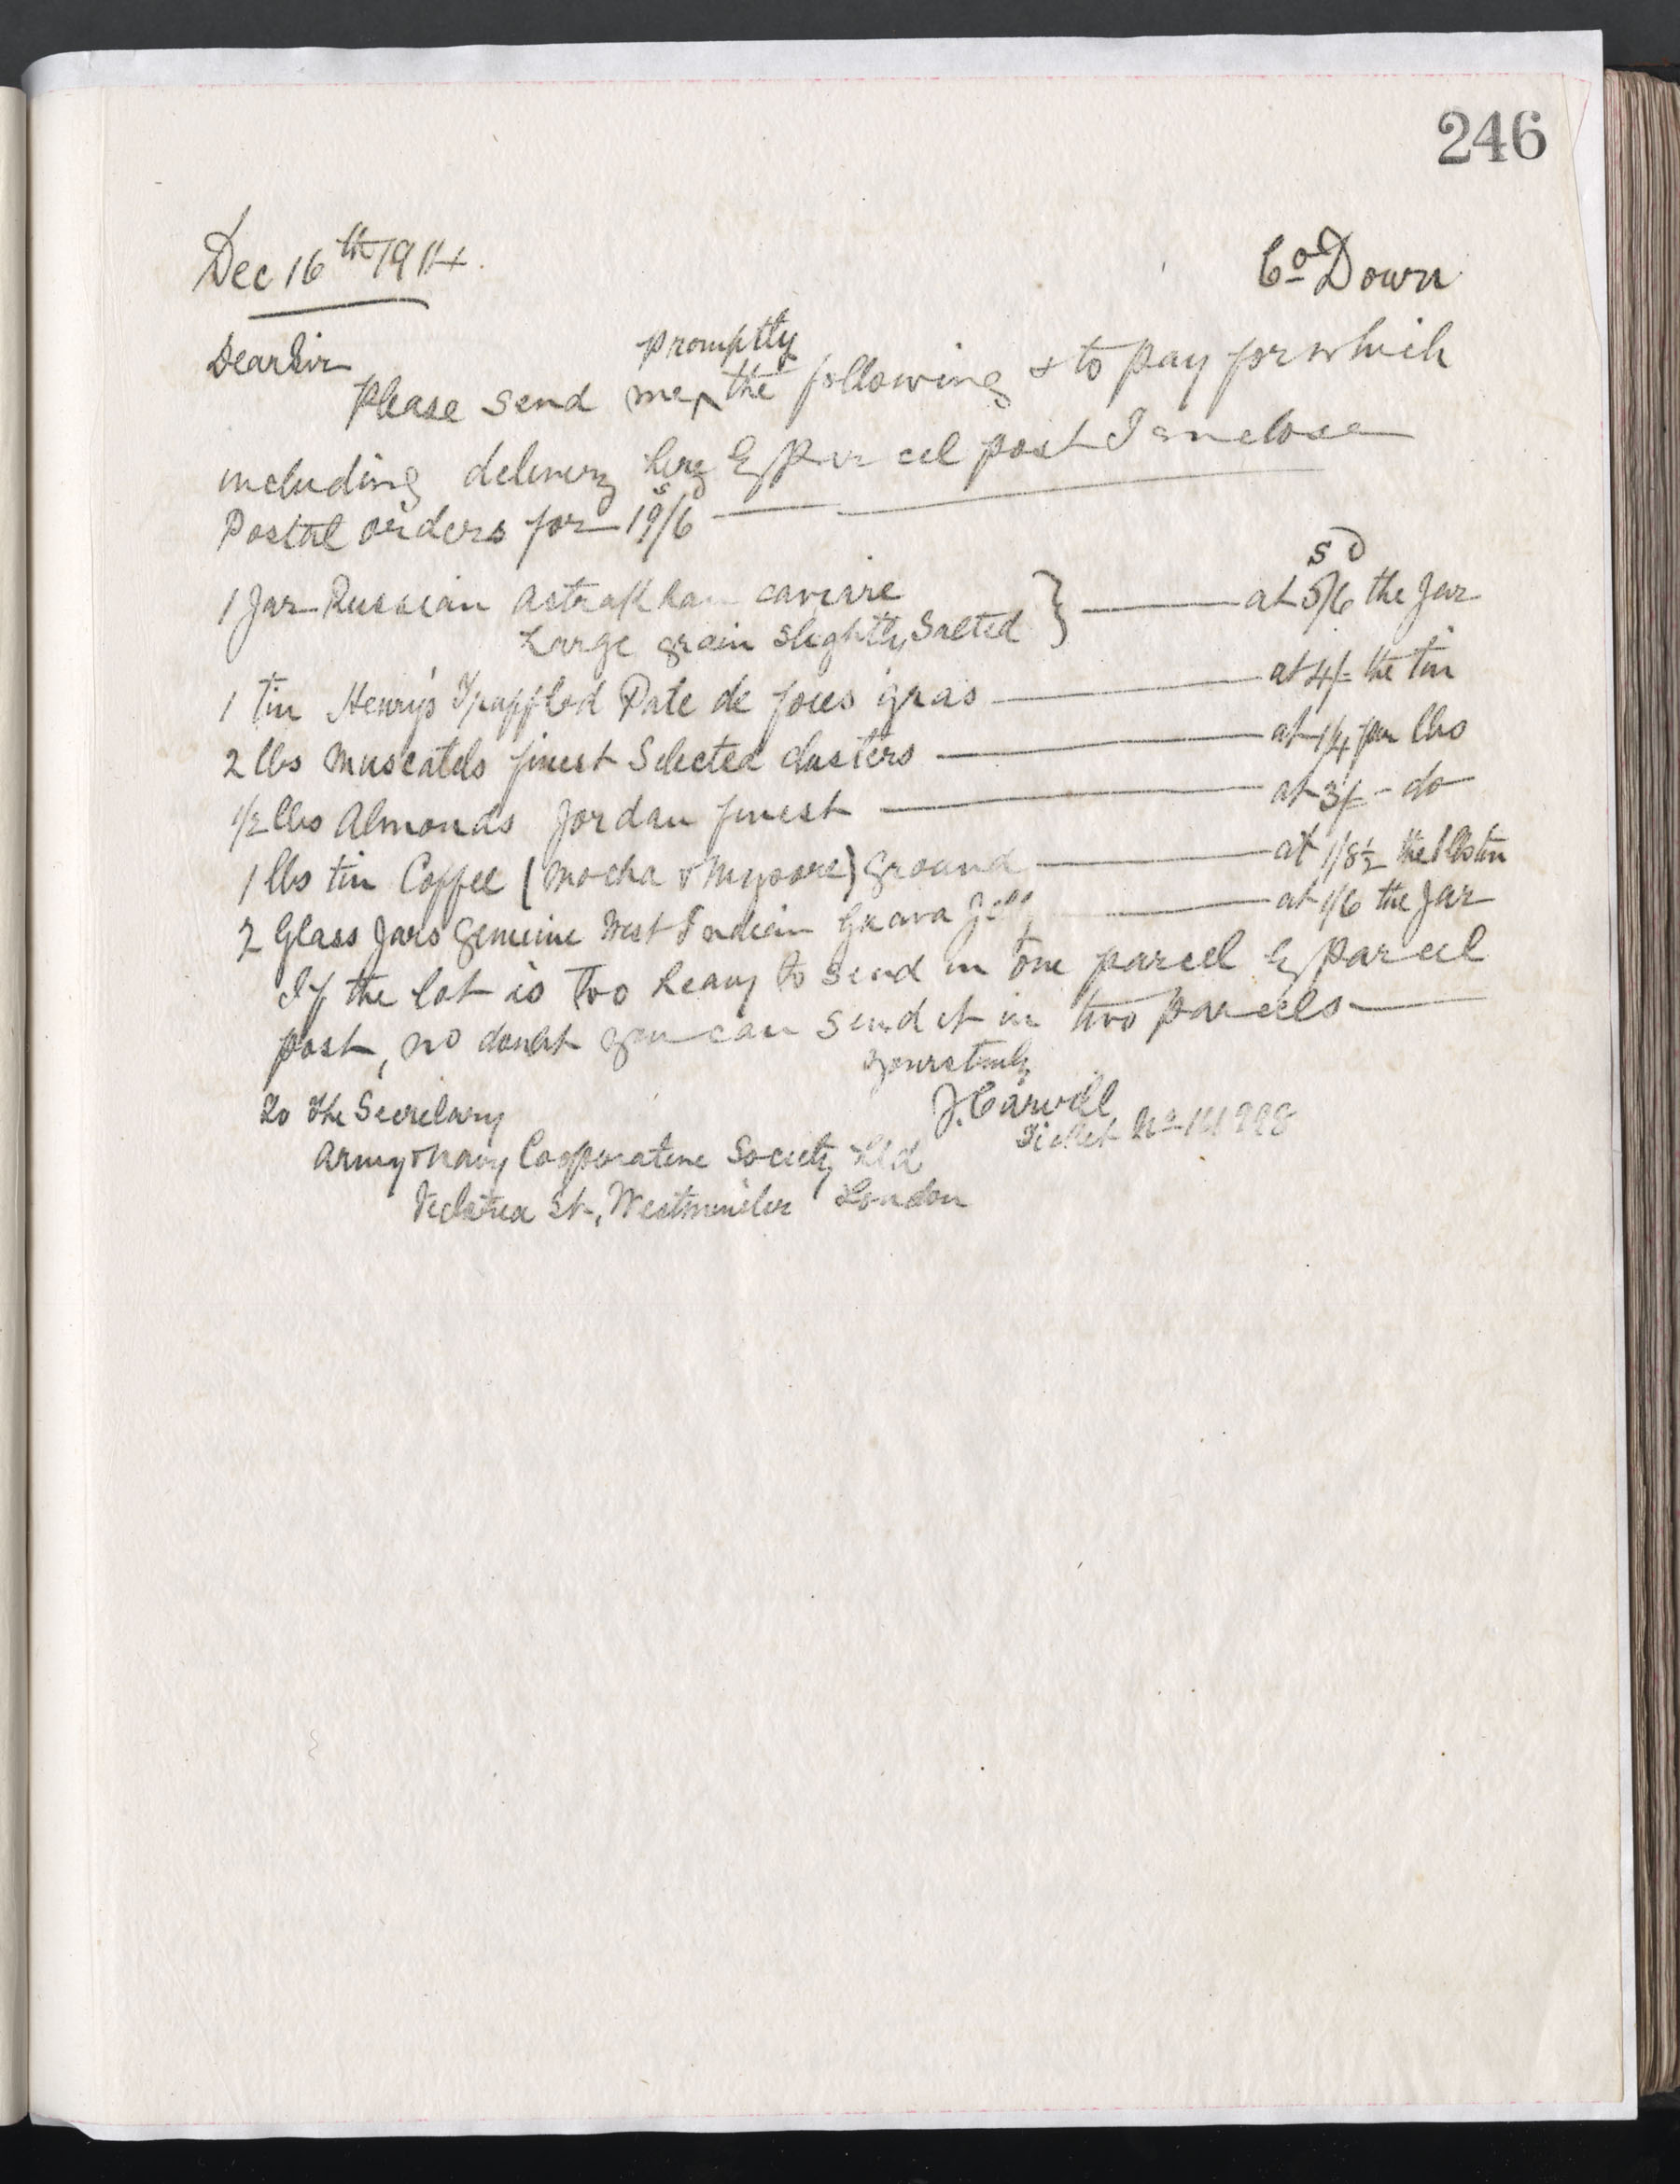 246
Dec 16th 1914. Co Down
Dear Sir
Please send me promptly the following & to pay for which
including delivery here by Parcel post I enclose
Postal orders for 19s/6d
1 Jar Russian Astrakhan caviare } at 5s/6d the Jar
Large grain slightly salted
1 tin Henry's Truffled Pate de foies gras — at 4/- the tin
2 lbs Muscatels finest Selected clusters — at 1/4 per lbs
1/2 lbs Almonds Jordan finest — at 3/- do
1 lbs tin Coffee (Mocha & Mysore) ground — at 1/8½ the 1 lbs tin
2 Glass Jars genuine West Indian Guava Jelly — at 1/6 the Jar
If the lot is too heavy to send in one parcel by parcel
post, no doubt you can send it in two parcels —
Yours truly
J. Carvill
Ticket No
To The Secretary
Army & Navy Cooperative Society Ltd
St, Westminster London